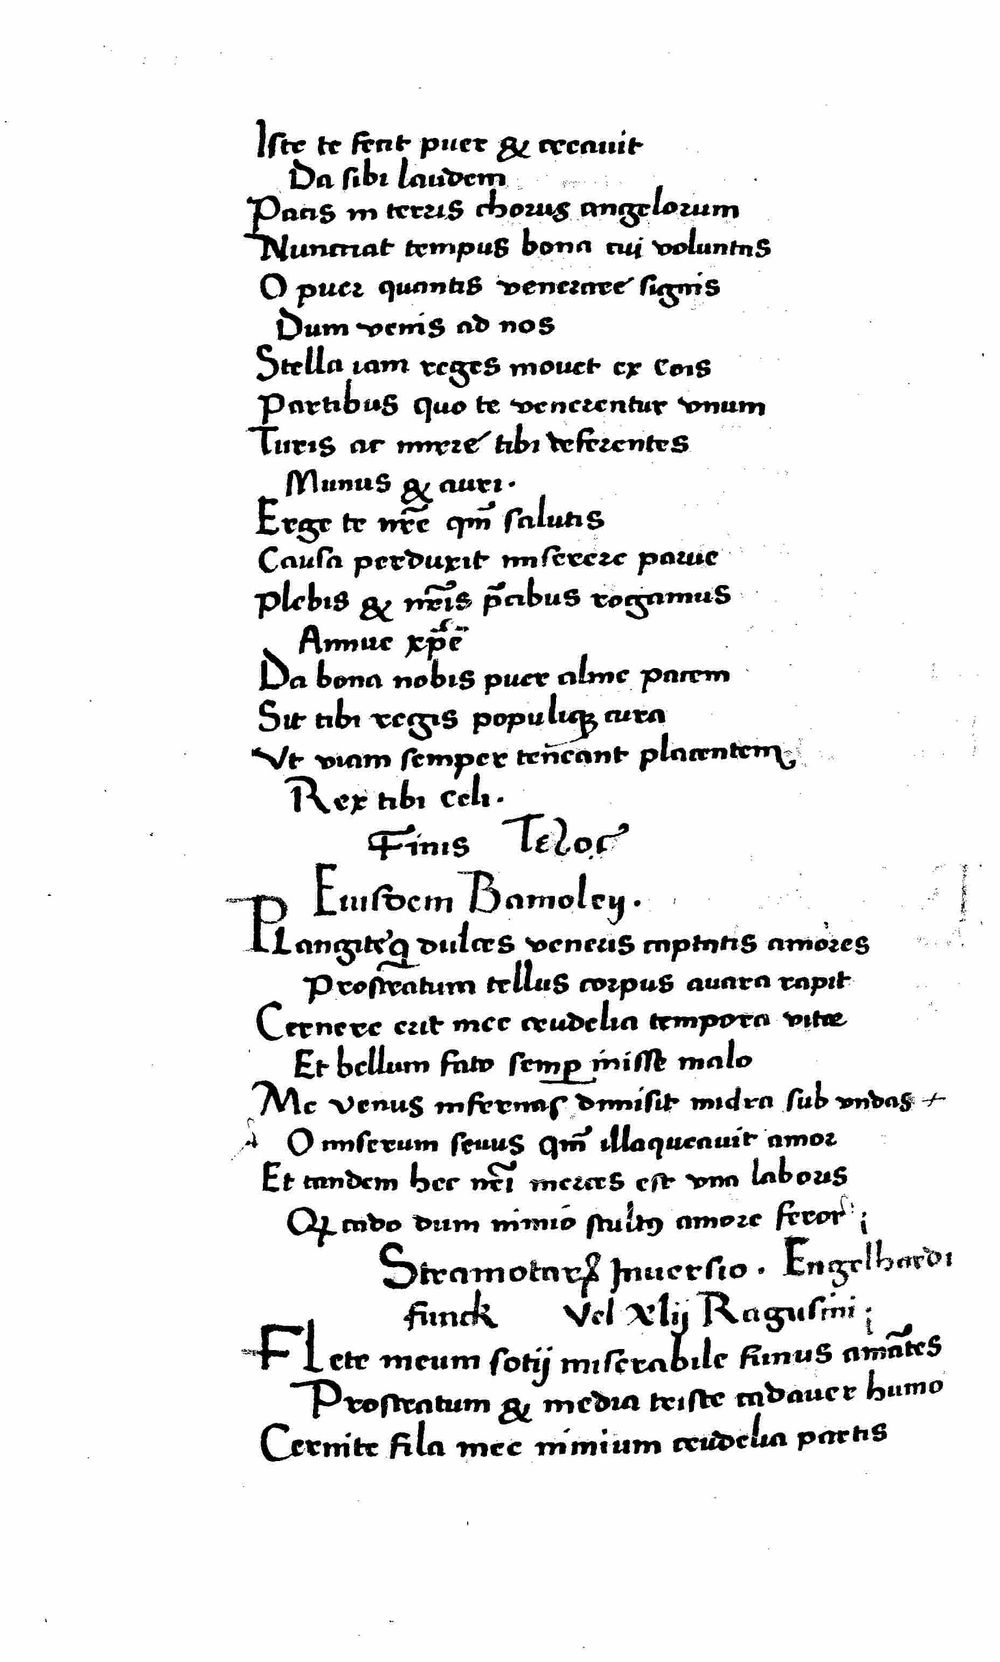 Iste te fecit puer & creauit
Da sibi laudem
Pacis in terris chorus angelorum
Nunctiat tempus bona cui voluntas
O puer quantis venerare signis
Dum venis ad nos
Stella iam reges mouet ex Eois
Partibus quo te venerentur vnum
Turis ac mirre tibi deferentes
Munus & auri.
Erge te nr̄e qm̄ salutis
Causa perduxit miserere parue
Plebis & nr̄is p̄cibus rogamus
Annue xp̄e
Da bona nobis puer alme pacem
Sit tibi regis populiqꝫ cura
Vt viam semper teneant placentem
Rex tibi Celi.
Finis Τελος
Eiusdem Bamoley.
Plangite dulces veneris captatis amores
Prostratum tellus corpus auara rapit
Cernere erit mee crudelia tempora vitae
Et bellum fato semꝑ inisse malo
Me Venus infernas dimisit sub vndas +
O miserum seuus qm̄ illaqueauit amor
Et tandem hec nr̄i merces est vna laboris
Qꝫ cado dum nimio stultꝰ amore feror
Stramotarꝝ Inuersio. Engelhardi
funck Vel xlij Ragusini
Flete meum sotij miserabile funus amātes
Prostratum & media triste cadauer humo
Cernite fila mee nimium crudelia partis